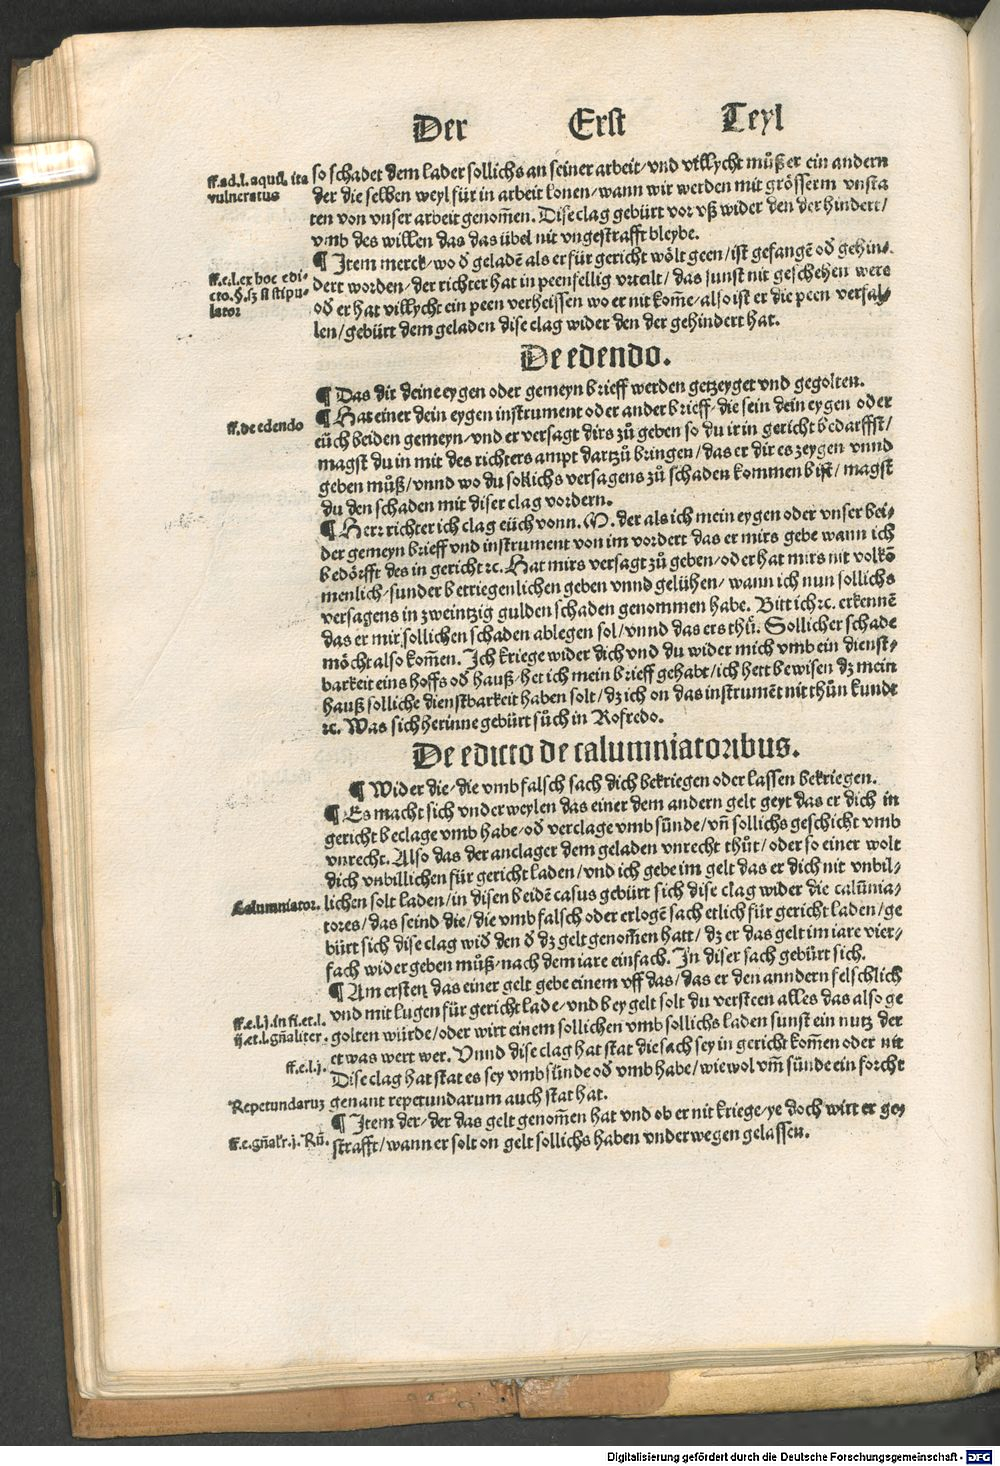 Der Erst Teyl
ff.ad.l.aquil. ita
vulneratus
so schadet dem lader sollichs an seiner arbeit/vnd villycht můß er ein andern
der die selben weyl für in arbeit lonen/wann wir werden mit grösserm vnsta
ten von vnser arbeit genom̄en. Dise clag gebürt vor vß wider den der hindert/
vmb des willen das das übel nit vngestrafft bleybe.
ff.e.l.ex hoc edi-
cto.§.sz si stipu-
lator
¶ Item merck/wo d̄ geladē als er für gericht wölt geen/ist gefangē od̄ gehin-
dert worden/der richter hat in peenfellig vrtalt/das sunst nit geschehen were
od̄ er hat villycht ein peen verheissen wo er nit kom̄e/also ist er die peen verfal-
len/gebürt dem geladen dise clag wider den der gehindert hat.
De edendo.
¶ Das dir deine eygen oder gemeyn brieff werden getzeyget vnd gegolten.
ff.de edendo
¶ Hat einer dein eygen instrument oder ander brieff/die sein dein eygen oder
eüch beiden gemeyn/vnd er versagt dirs zů geben so du ir in gericht bedarffst/
magst du in mit des richters ampt dartzů bringen/das er dir es zeygen vnnd
geben můß/vnnd wo du sollichs versagens zů schaden kommen bist/magst
du den schaden mit diser clag vordern.
¶ Herr richter ich clag eüch vonn. M. der als ich mein eygen oder vnser bei-
der gemeyn brieff vnd instrument von im vordert das er mirs gebe wann ich
bedörfft des in gericht ⁊c. Hat mirs versagt zů geben/oder hat mirs nit volkō
menlich/sunder betriegenlichen geben vnnd gelühen/wann ich nun sollichs
versagens in zweintzig gulden schaden genommen habe. Bitt ich ⁊c. erkennē
das er mir sollichen schaden ablegen sol/vnnd das ers thů. Sollicher schade
möcht also kom̄en. Ich kriege wider dich vnd du wider mich vmb ein dienst-
barkeit eins hoffs od̄ hauß/het ich mein brieff gehabt/ich hett bewisen dz mein
hauß solliche dienstbarkeit haben solt/dz ich on das instrumēt nit thůn kundt
⁊c. Was sich herinne gebürt sůch in Rofredo.
De edicto de calumniatoribus.
¶ Wider die/die vmb falsch sach dich bekriegen oder lassen bekriegen.
¶ Es macht sich vnderweylen das einer dem andern gelt geyt das er dich in
gericht beclage vmb habe/od̄ verclage vmb sünde/vn̄ sollichs geschicht vmb
vnrecht. Also das der anclager dem geladen vnrecht thůt/oder so einer wolt
dich vnbillichen für gericht laden/vnd ich gebe im gelt das er dich nit vnbil-
Calumniator.
lichen solt laden/in disen beidē casus gebürt sich dise clag wider die calūnia-
tores/das seind die/die vmb falsch oder erlogē sach etlich für gericht laden/ge
bürt sich dise clag wid̄ den d̄ dz gelt genom̄en hatt/dz er das gelt im iare vier-
fach wider geben můß/nach dem iare einfach. In diser sach gebürt sich.
¶ Am ersten das einer gelt gebe einem vff das/das er den anndern felschlich
ff.e.l.j.in fi.et.l.
ij.et.l.gn̄aliter.
vnd mit lugen für gericht lade/vnd bey gelt solt du versteen alles das also ge
golten würde/oder wirt einem sollichen vmb sollichs laden sunst ein nutz der
ff.e.l.j.
etwas wert wer. Vnnd dise clag hat stat die sach sey in gericht kom̄en oder nit
Dise clag hat stat es sey vmb sünde od̄ vmb habe/wie wol vm̄ sünde ein forcht
Repetundarum
genant repetundarum auch stat hat.
ff.e.gn̄al'r.j.Rn̄.
¶ Item der/der das gelt genom̄en hat vnd ob er nit kriege/ye doch wirt er ge-
strafft/wann er solt on gelt sollichs haben vnderwegen gelassen.
Digitalisierung gefördert durch die Deutsche Forschungsgemeinschaft - DFG